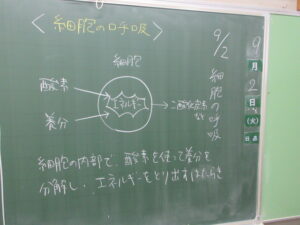 ＜細胞の呼吸＞
細胞
酸素
養分
エネルギー
二酸化炭素
など
細胞の内部で、酸素を使って養分を
分解し、エネルギーをとり出すはたらき
9/2
細胞の呼吸
9
月
2
日
(火)
日直